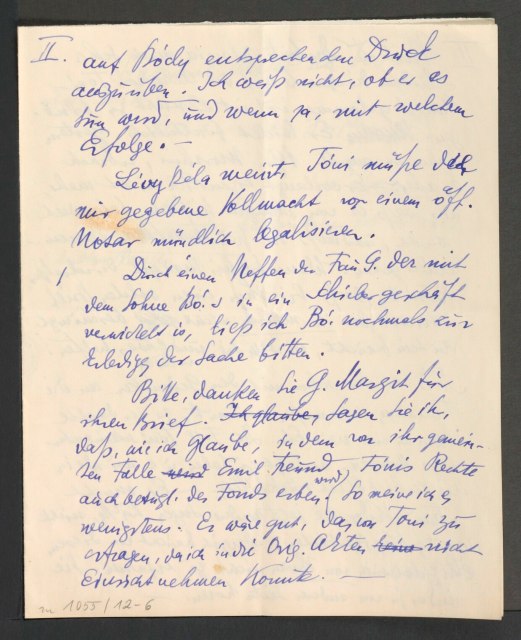 II. auf Bódy entsprechenden Druck
auszuüben. Ich weiß nicht, ob er es
tun wird, und wenn ja, mit welchem
Erfolge. —
Lévy Béla meint, Toni müße die
mir gegebene Vollmacht vor einem öff.
Notar mündlich legalisieren.
Durch einen Neffen der Frau G. der mit
dem Sohne Bó.s in ein Schiebergeschäft
verwickelt is, ließ ich Bó. nochmals zur
Erledigg der Sache bitten.
Bitte, danken Sie G. Margit für
ihren Brief. Ich glaube, Sagen Sie ihr,
daß, wie ich glaube, in dem von ihr gemein-
ten Falle wird Emil Freund, Tónis Rechte
auch bezügl. des Fonds erben wird, So meine ich es
wenigstens. Es wäre gut, das von Toni zu
erfragen, da ich in die Orig. Akten keine nicht
Einsicht nehmen konnte. —
m 1055/12-6